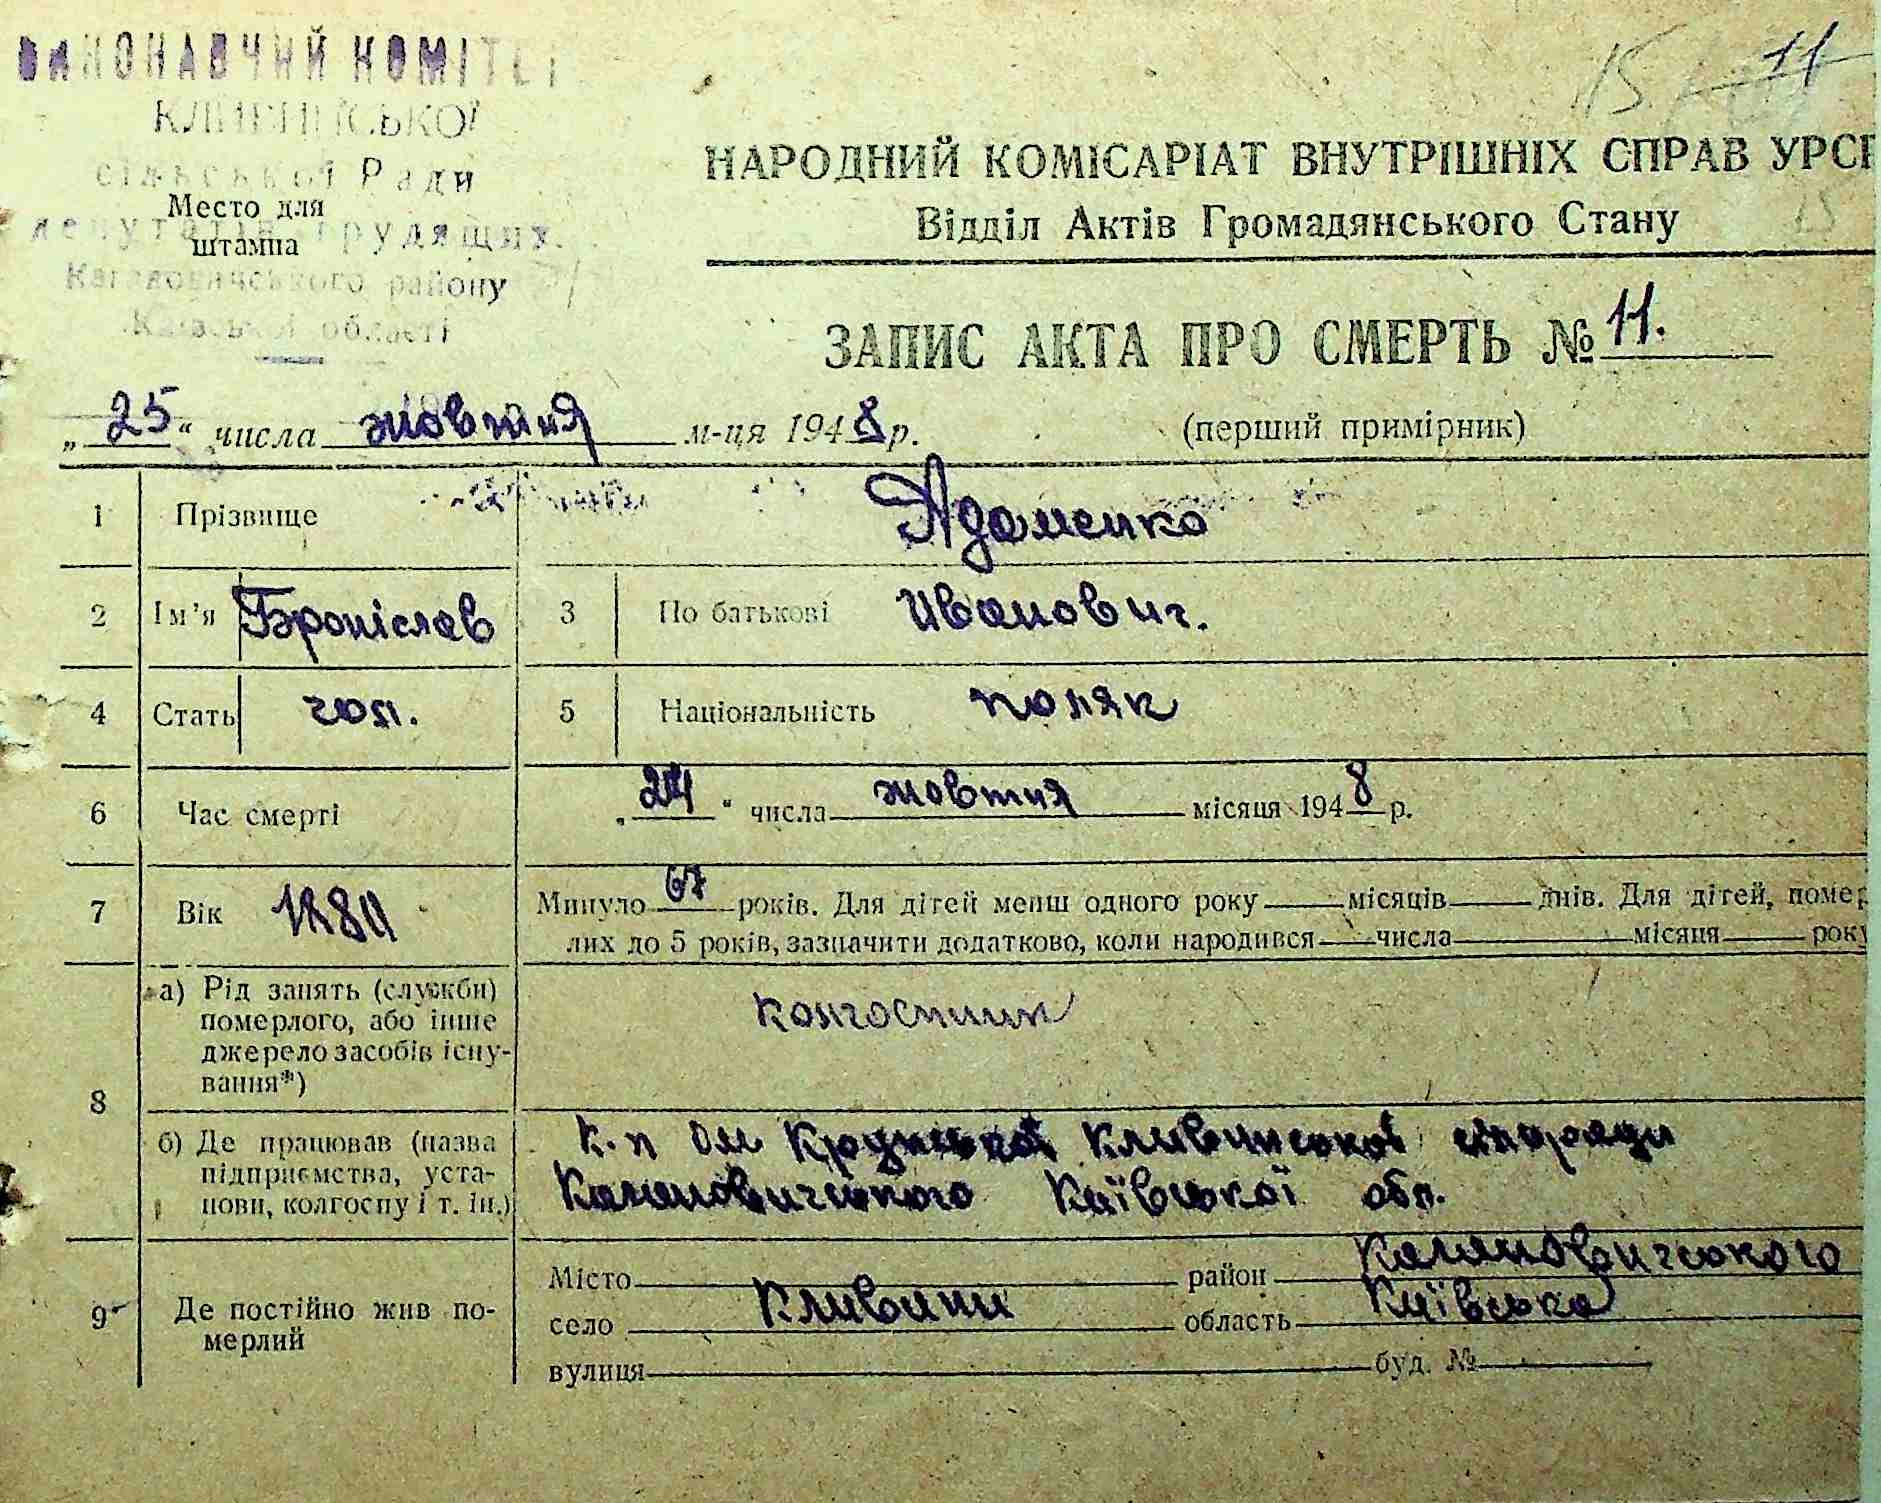 ВИКОНАВЧИЙ КОМІТЕТ
15 11
КЛИВИНСЬКОЇ
сільської Ради
Место для
депутатів трудящих
штампа
Кагановичського району
Київської області
НАРОДНИЙ КОМІСАРІАТ ВНУТРІШНІХ СПРАВ УРСР
Відділ Актів Громадянського Стану
15
ЗАПИС АКТА ПРО СМЕРТЬ № 11.
„25“ числа жовтня м-ця 1948 р. (перший примірник)
1 Прізвище Адоменко
2 Ім'я Броніслав 3 По батькові Иванович.
4 Стать чол. 5 Національність поляк
6 Час смерті „24“ числа жовтня місяця 1948 р.
7 Вік Минуло 67 років. Для дітей менш одного року місяців днів. Для дітей, помер
лих до 5 років, зазначити додатково, коли народився числа місяця року
8 а) Рід занять (служби) померлого, або інше джерело засобів існу-вання*) колгоспник
б) Де працював (назва підприємства, уста-нови, колгоспу і т. ін.) к-п Ом Крупської Кливинської сільради
Кагановичського Київської обл.
9 Де постійно жив по-мерлий
Місто район Кагановичського
село Кливини область Київська
вулиця буд. №